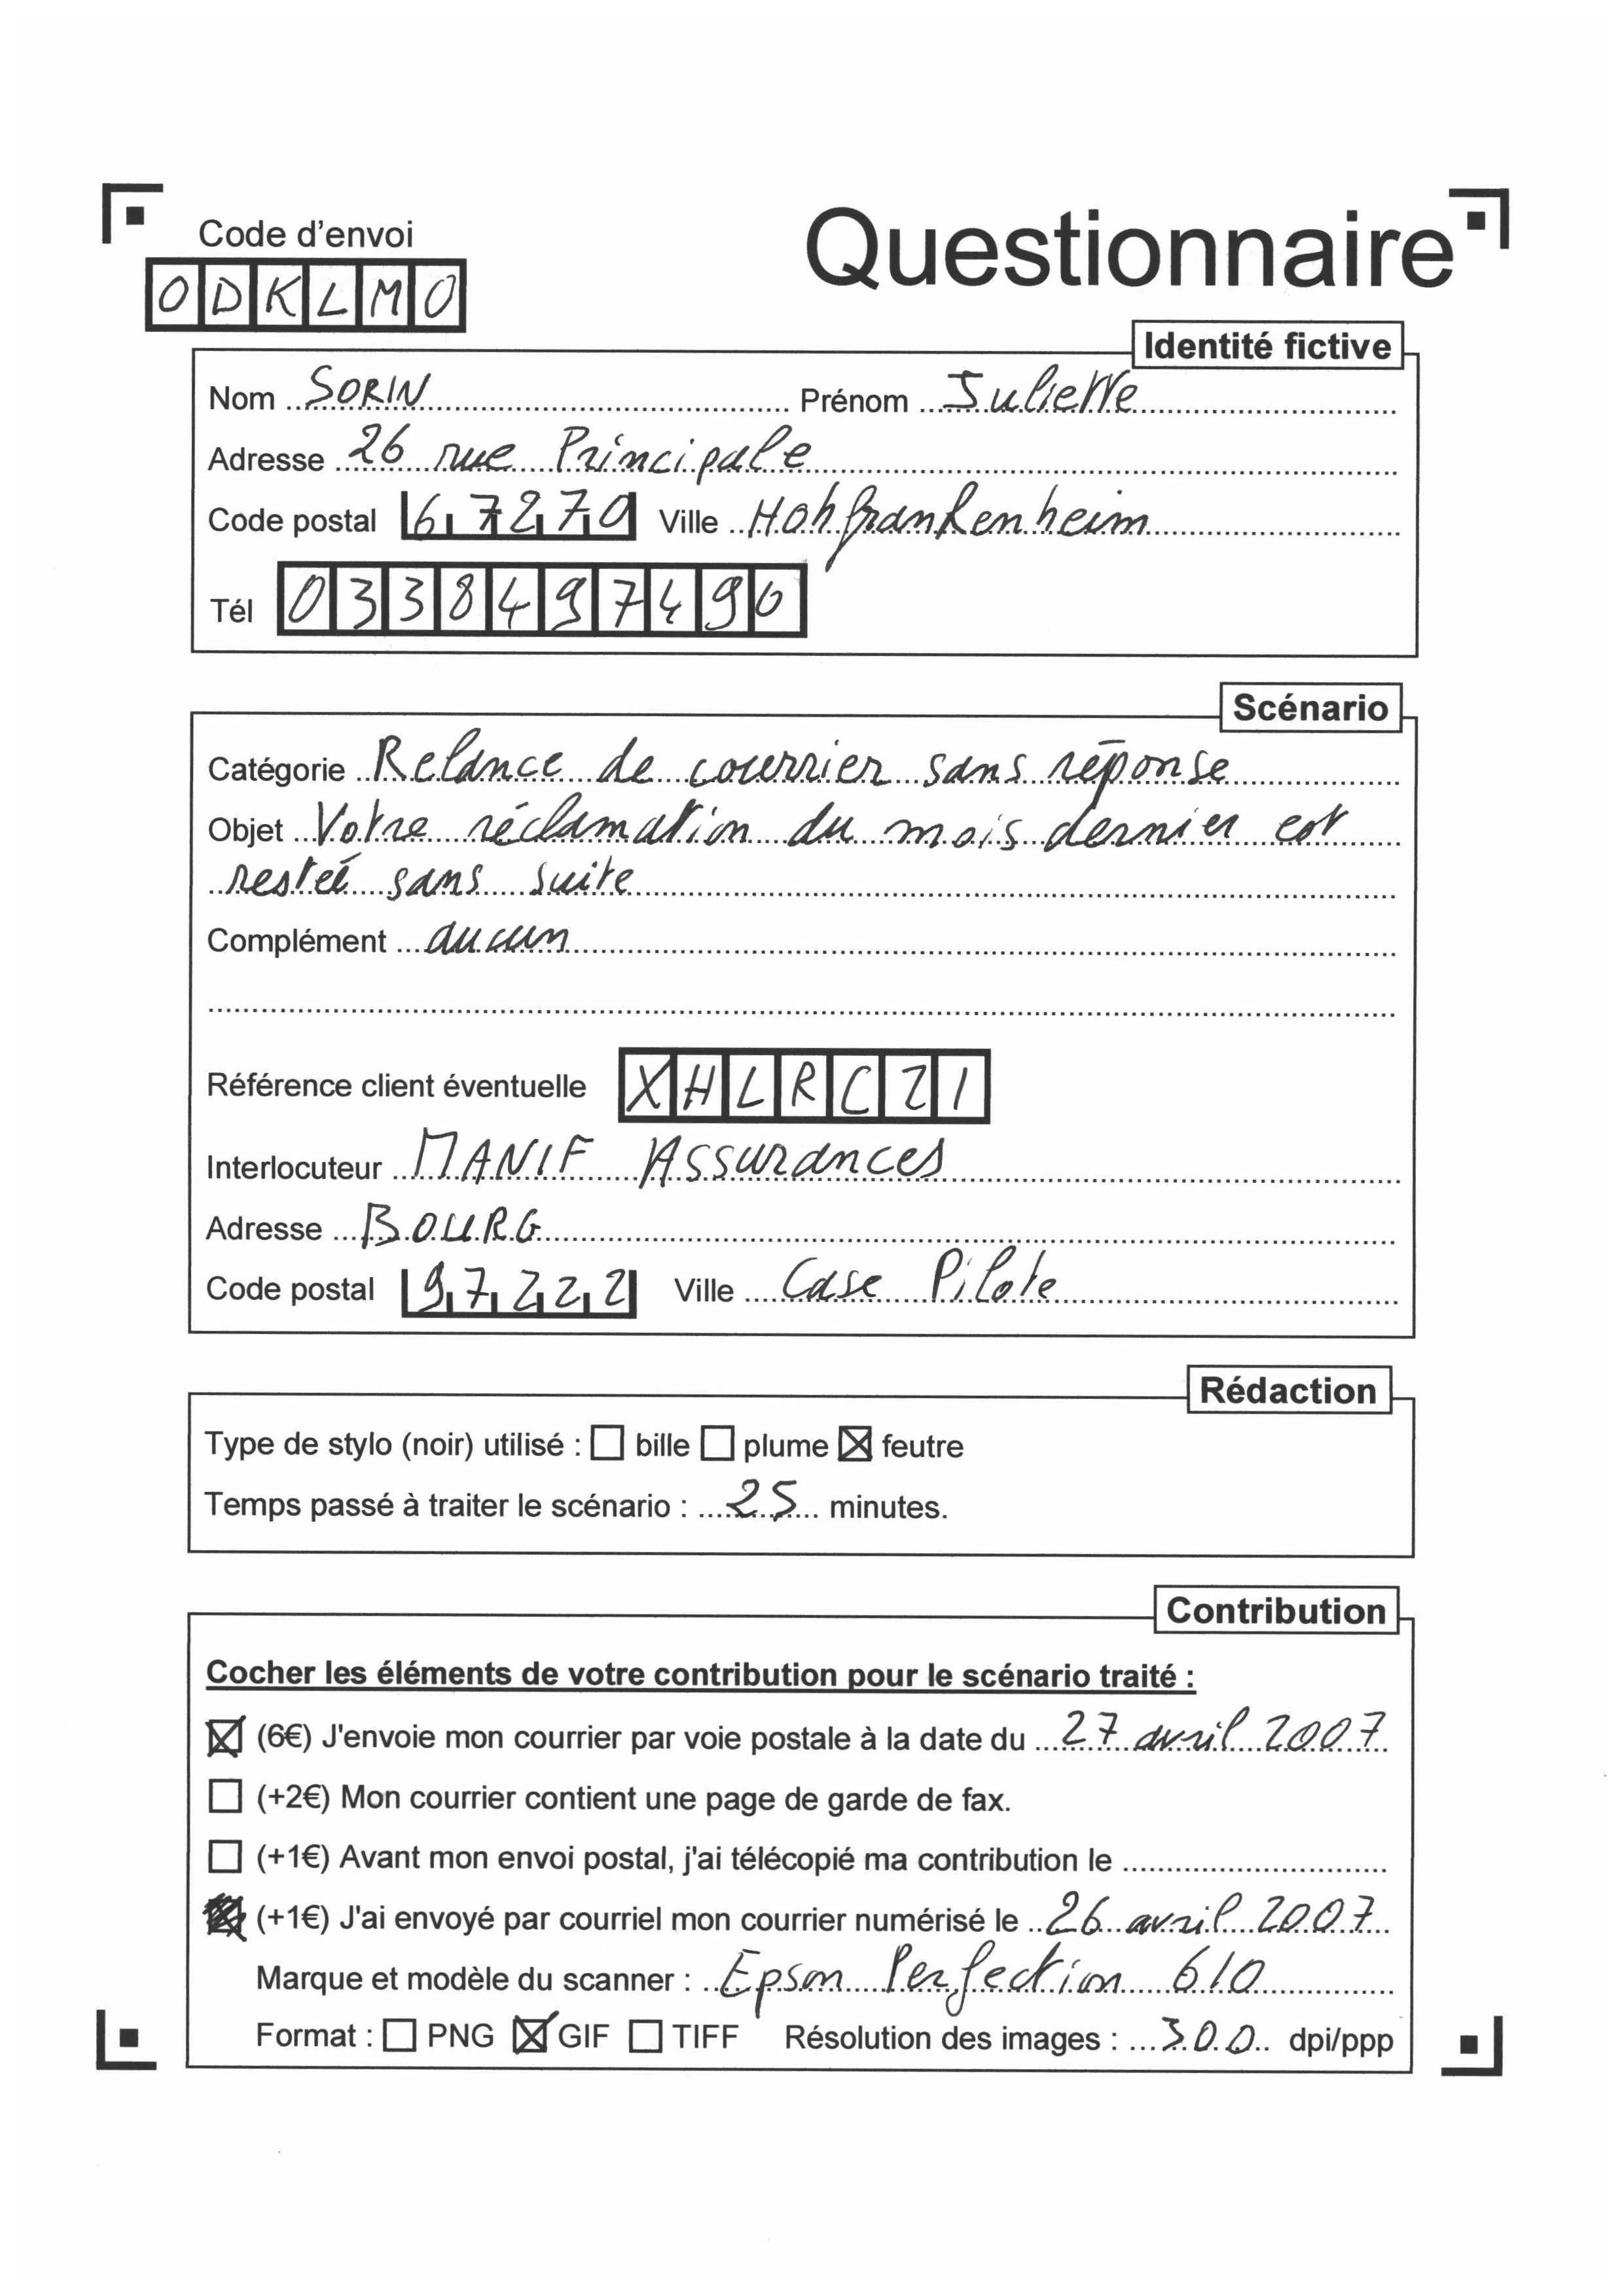 Code d'envoi
Questionnaire
ODKLMO
Identité fictive
Nom SORIN Prénom Juliette
Adresse 26 rue Principale
Code postal 67270 Ville Hohfrankenheim
Tél 0338497490
Scénario
Catégorie Relance de courrier sans réponse
Objet Votre réclamation du mois dernier est
restée sans suite
Complément aucun
Référence client éventuelle XHLRCZ1
Interlocuteur MANIF Assurances
Adresse BOURG
Code postal 97222 Ville Case Pilote
Rédaction
Type de stylo (noir) utilisé : bille plume feutre
Temps passé à traiter le scénario : 25 minutes.
Contribution
Cocher les éléments de votre contribution pour le scénario traité :
(6€) J'envoie mon courrier par voie postale à la date du 27 avril 2007
(+2€) Mon courrier contient une page de garde de fax.
(+1€) Avant mon envoi postal, j'ai télécopié ma contribution le
(+1€) J'ai envoyé par courriel mon courrier numérisé le 26 avril 2007
Marque et modèle du scanner : Epson Perfection 610
Format : PNG GIF TIFF Résolution des images : 300 dpi/ppp